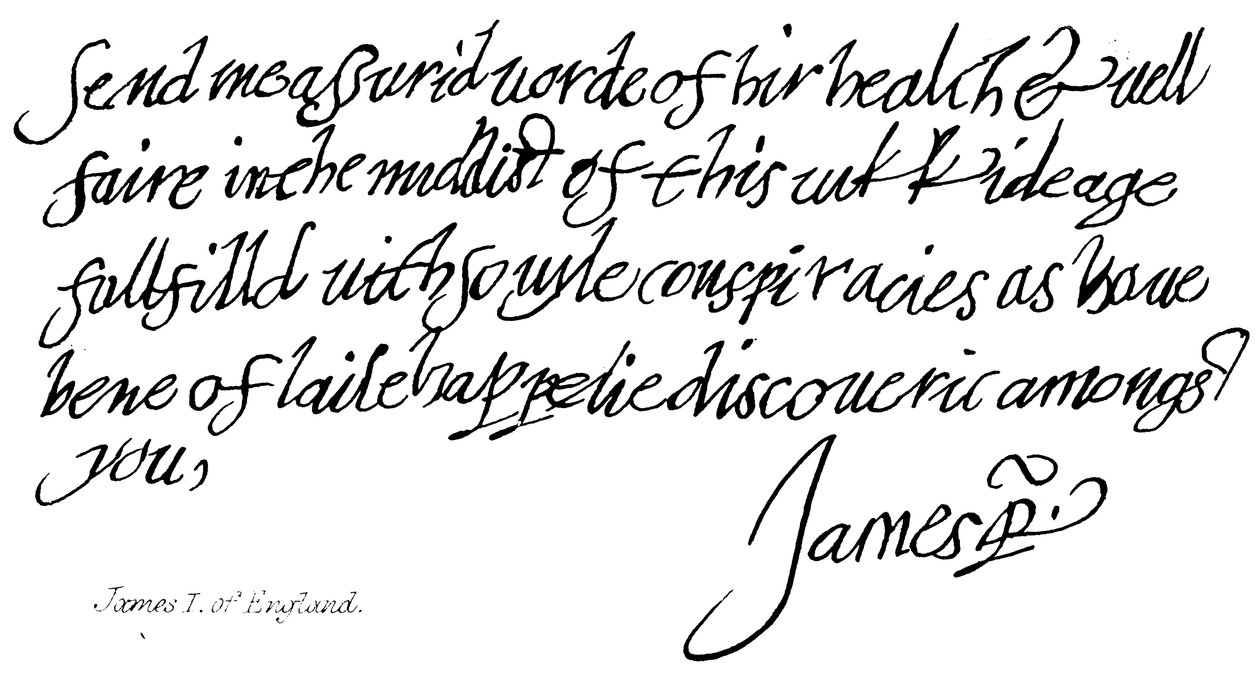 Send me assurid uorde of hir health & uell
faire in the middist of this uikkide age
fullfilld uith so uyle conspiracies as haue
bene of laite happelie discouerit amongst
you,
James R.
James I. of England.